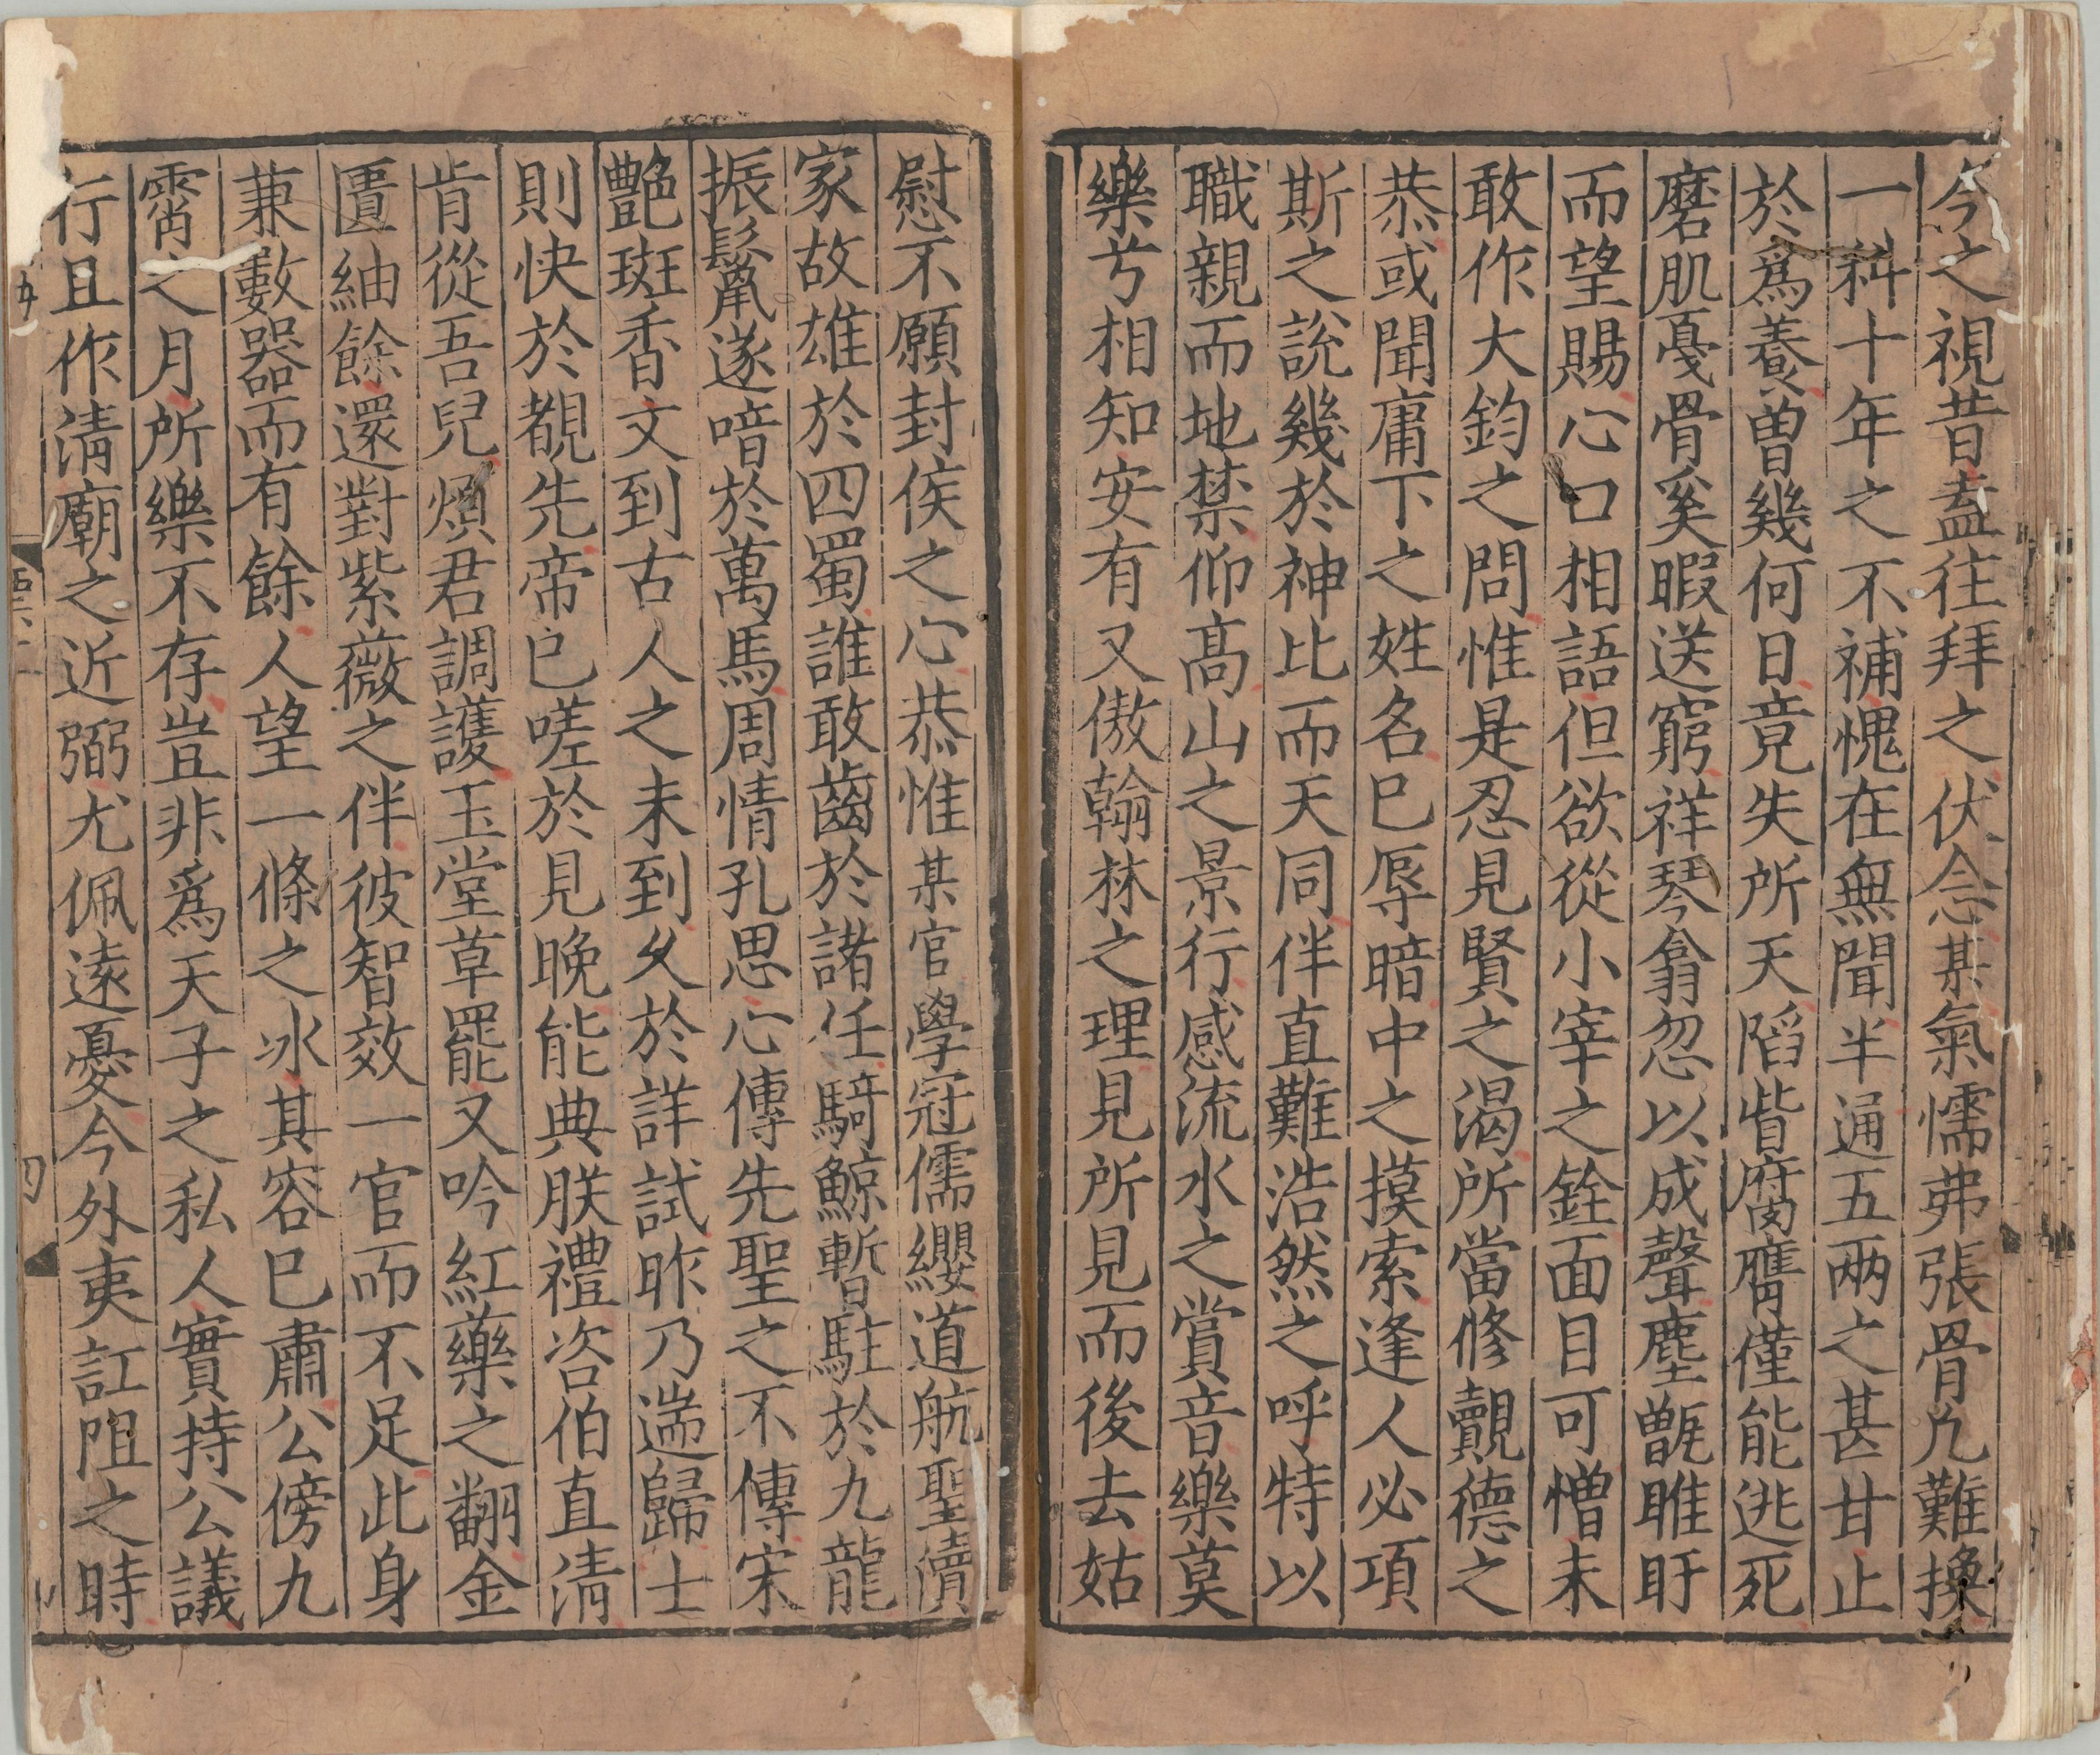 今之視昔盍往拜之伏念某氣懦弗張骨凡難換
一科十年之不補愧在無聞半通五兩之甚甘止
於爲養曽幾何日竟失所天䧟眥腐膺僅能逃死
磨肌戞骨奚暇送窮祥琴翕忽以成聲塵甑睢盱
而望賜心口相語但欲從小宰之銓面目可憎未
敢作大鈞之問惟是忍見賢之渇所當修覿德之
恭或聞庸下之姓名已辱暗中之摸索逢人必項
斯之說幾於神比而天同伴直難浩然之呼特以
職親而地禁仰髙山之景行感流水之賞音樂莫
樂兮相知安有又傲翰林之理見所見而後去姑
慰不願封侯之心恭惟某官學冠儒纓道航聖瀆
家故雄於四蜀誰敢齒於諸任騎鯨暫駐於九龍
振鬣遂喑於萬馬周情孔思心傳先聖之不傳宋
艶班香文到古人之未到久於詳試昨乃遄歸士
則快於覩先帝已嗟於見晚能典朕禮咨伯直清
肯從吾兒煩君調護玉堂草罷又吟紅藥之翻金
匱紬餘還對紫薇之伴彼智效一官而不足此身
兼數器而有餘人望一條之冰其容已肅公傍九
霄之月所樂不存豈非爲天子之私人實持公議
行且作淸廟之近弼尤佩遠憂今外夷訌阻之時